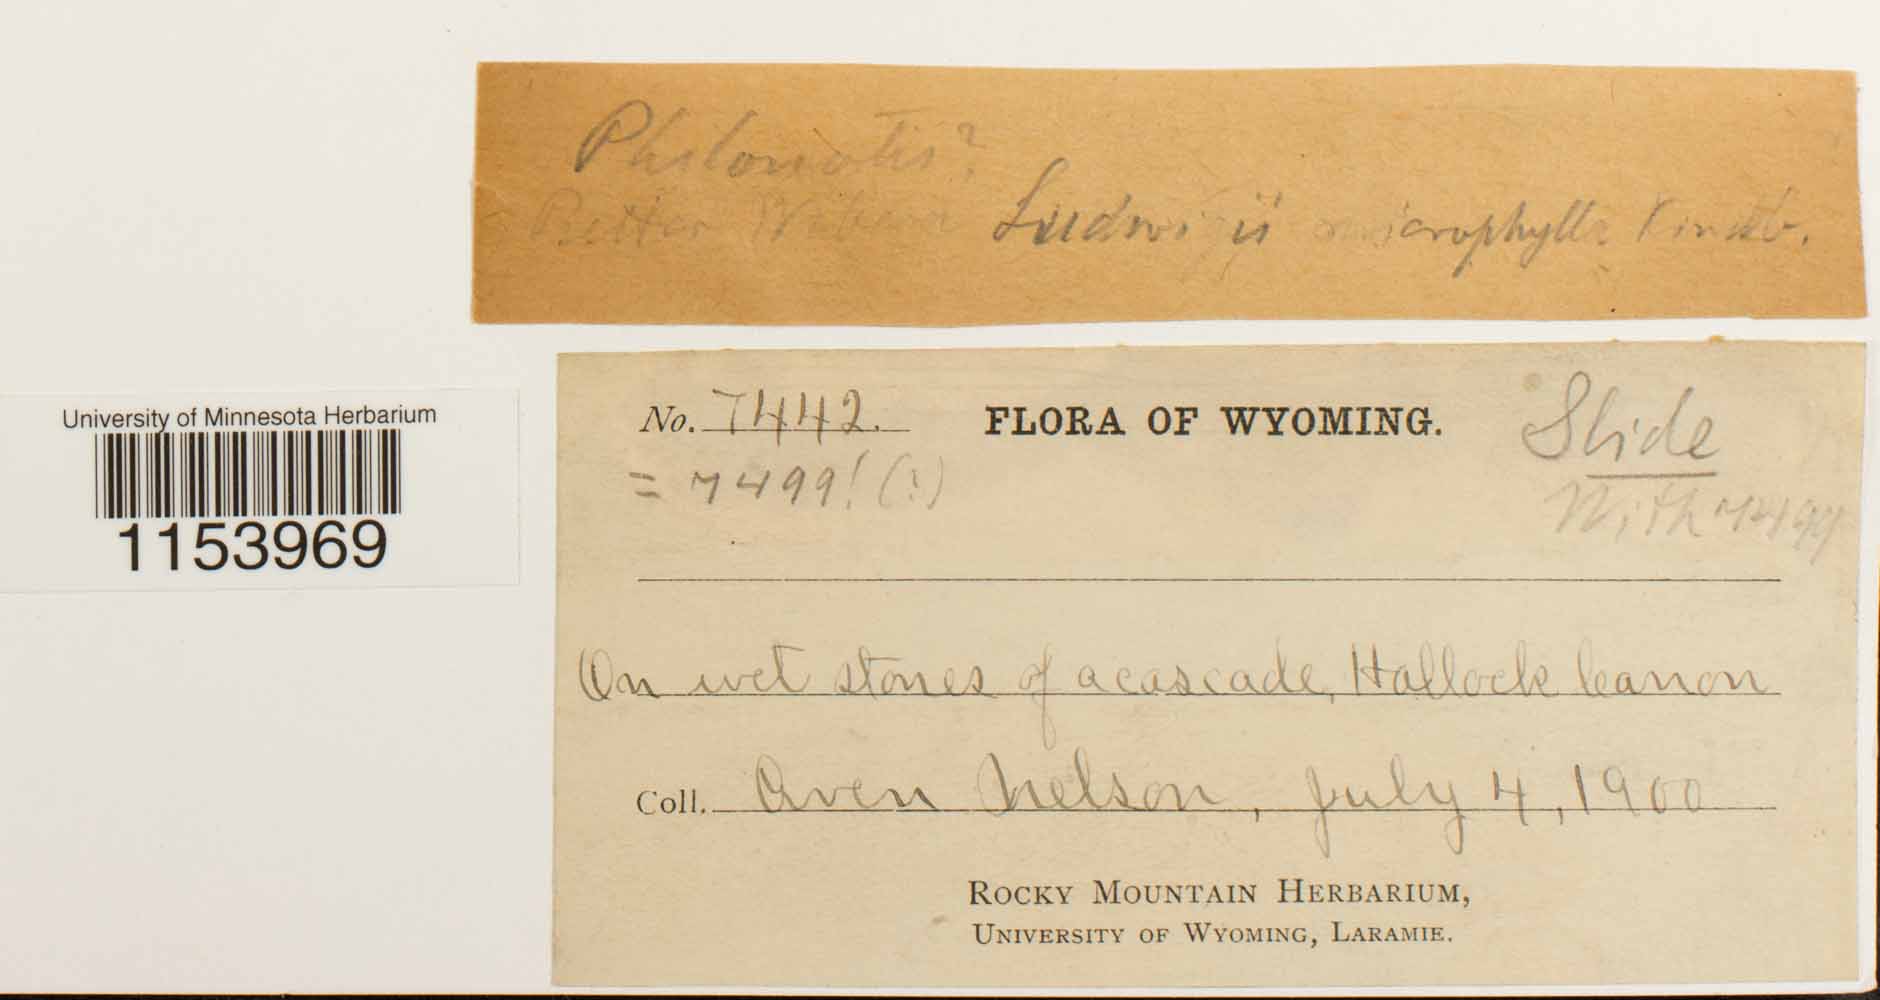 Philonotis?
Better Webera Ludwigii microphylla Kindb.
University of Minnesota Herbarium
1153969
No. 7442. FLORA OF WYOMING. Slide
= 7499! (!) With 7499
On wet stones of a cascade, Hallock Canon
Coll. Aven Nelson, July 4, 1900
ROCKY MOUNTAIN HERBARIUM,
UNIVERSITY OF WYOMING, LARAMIE.